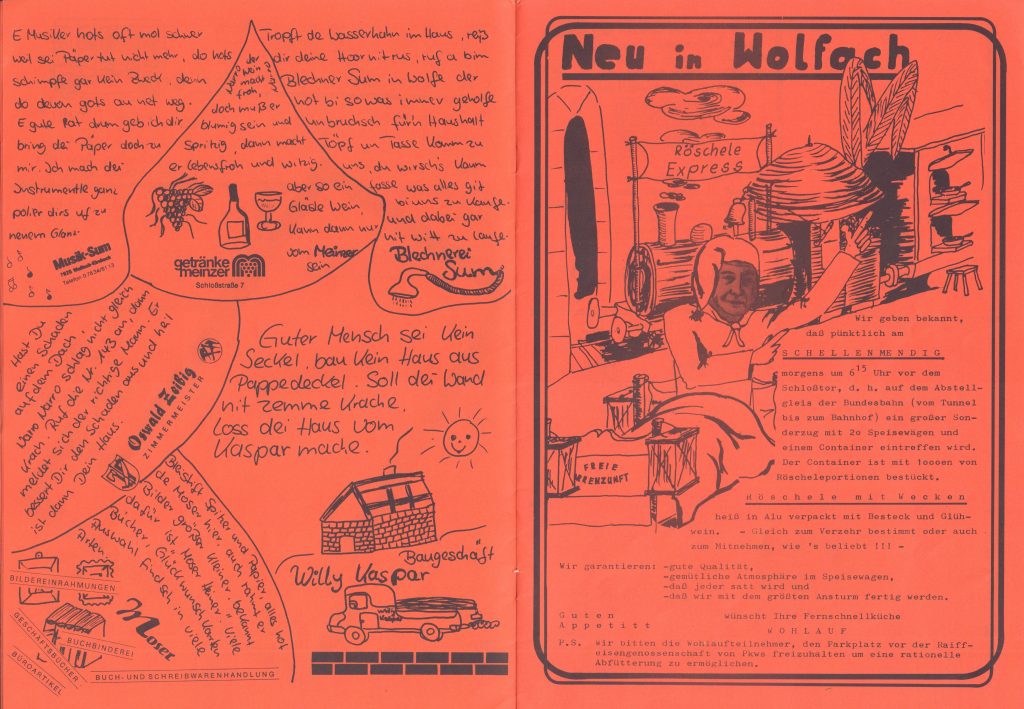 E Musiker hots oft mol schwer
weil sei Päper tut nicht mehr, do hots
schimpfe gar kein Zweck, denn
do devon gots au net weg.
E gute Rat drum geb ich dir
bring dei Päper doch zu
mir. Ich mach dei
Instrumentle ganz
polier dirs uf zu
neuem Glanz.
Musik-Sum
Narro der
Wein macht
froh,
doch muß er
blumig sein und
Spritzig, dann macht
er lebensfroh und witzig.
aber so ein
Gläsle Wein,
kann dann nur
vom Meinzer
sein
getränke
meinzer
Schloßstraße 7
Tropft de Wasserhahn im Haus, reiß
dir deine Hoor nit rus, ruf a bim
Blechner Sum in Wolfe der
hot bi so was immer geholfe
un bruchsch für'n Haushalt
Töpf un Tasse kamm zu
uns, du wirsch's kaum
fasse was alles git
bi uns zu kaufe.
und dabei gar
nit witt zu laufe.
Blechnerei
Sum
Hast Du
einen Schaden
auf dem Dach
Narro Narro schlag nicht gleich
Krach. Ruf die Nr. 143 an, dann
meldet sich der richtige Mann. Er
bessert Dir den Schaden aus und heil
ist dann Dein Haus.
Oswald Zeißig
ZIMMERMEISTER
Guter Mensch sei kein
Seckel, bau kein Haus aus
Pappedeckel. Soll dei Wand
nit zemme krache,
loss dei Haus vom
Kaspar mache.
Baugeschäft
Willy Kaspar
Bleistift Spitzer und Papier alles hot
de Moser hier, auch rahmt er
Bilder größer kleiner bekannt
dafür ist Moser Heiner. Viele
Bücher, Glückwunschkarten
Auswahl find'sch in viele
Arten.
BILDEREINRAHMUNGEN
Moser
BUCHBINDEREI
GESCHÄFTSBÜCHER
BÜROARTIKEL
BUCH- UND SCHREIBWARENHANDLUNG
Neu in Wolfach
Röschele
Express
FREIE
NARRENZUNFT
Wir geben bekannt,
daß pünktlich am
SCHELLENMENDIG
morgens um 6 15 Uhr vor dem
Schloßtor, d. h. auf dem Abstell-
gleis der Bundesbahn (vom Tunnel
bis zum Bahnhof) ein großer Son-
derzug mit 2o Speisewägen und
einem Container eintreffen wird.
Der Container ist mit 1oooen von
Röscheleportionen bestückt.
Röschele mit Wecken
heiß in Alu verpackt mit Besteck und Glüh-
wein. - Gleich zum Verzehr bestimmt oder auch
zum Mitnehmen, wie 's beliebt !!! -
Wir garantieren: -gute Qualität,
-gemütliche Atmosphäre im Speisewagen,
-daß jeder satt wird und
-daß wir mit dem größten Ansturm fertig werden.
Guten
Appetitt
wünscht Ihre Fernschnellküche
WOHLAUF
P.S. Wir bitten die Wohlaufteilnehmer, den Parkplatz vor der Raiff-
eisengenossenschaft von Pkws freizuhalten um eine rationelle
Abfütterung zu ermöglichen.